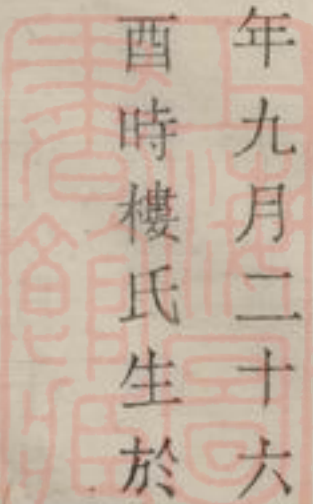 年九月二十六
酉時樓氏生於